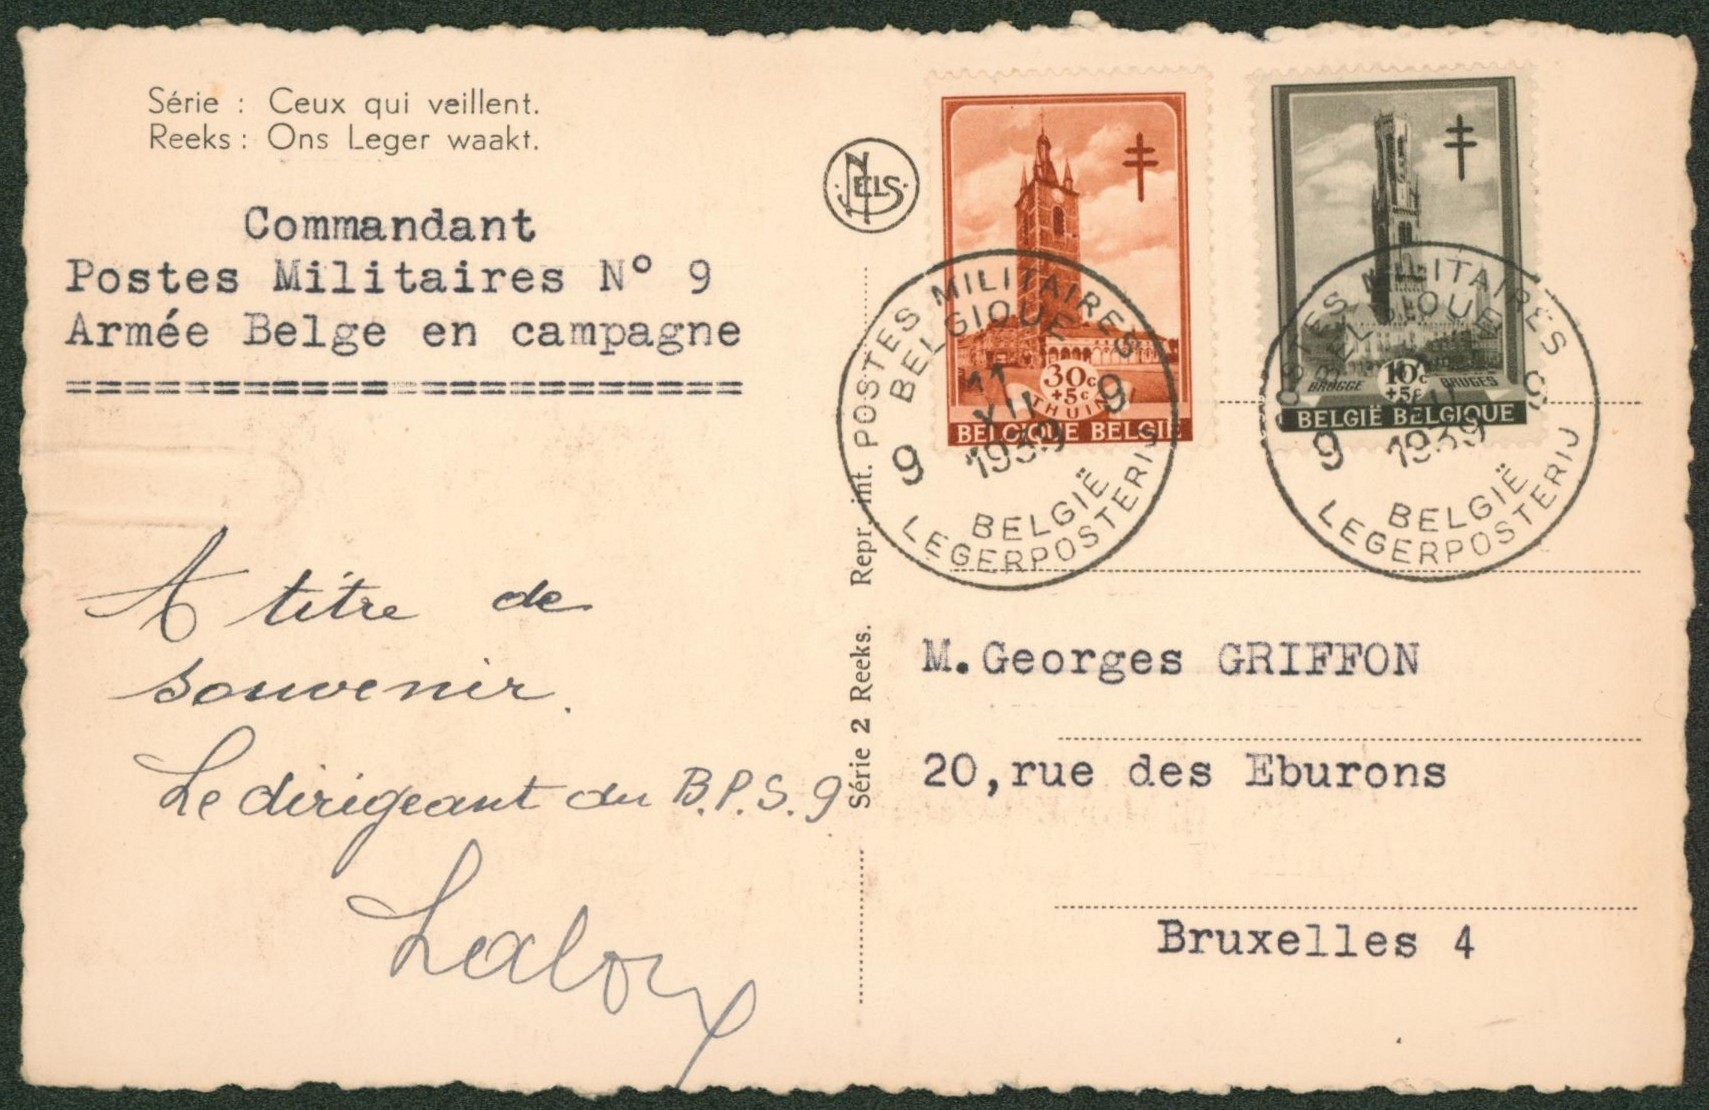 Série : Ceux qui veillent.
Reeks : Ons Leger waakt.
Commandant
Postes Militaires N° 9
Armée Belge en campagne
=========================
A titre de
souvenir.
Le dirigeant du B.P.S. 9
Laloux
NELS
Série 2 Reeks. Repr. int.
30c
+5c
THUIN
BELGIQUE BELGIË
BRUGGE 10c BRUGES
+5c
BELGIË BELGIQUE
POSTES MILITAIRES
BELGIQUE
11
XII
1939
9 9
BELGIË
LEGERPOSTERIJ
POSTES MILITAIRES
BELGIQUE
XII
1939
9 9
BELGIË
LEGERPOSTERIJ
M.Georges GRIFFON
20,rue des Eburons
Bruxelles 4